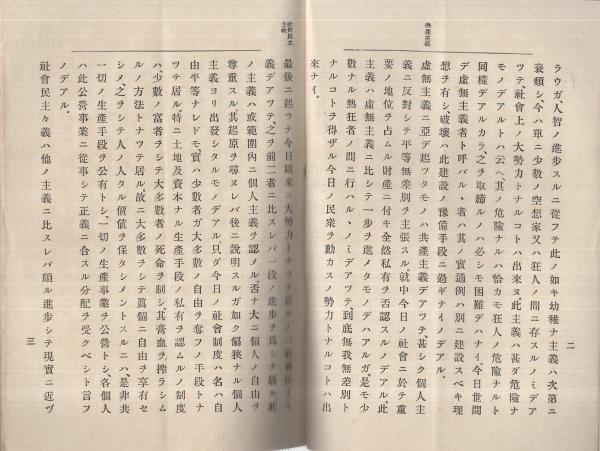 共産主義
二
ラウガ、人智ノ進歩スルニ從フテ此ノ如キ幼稚ナ主義ハ次第ニ
衰頽シ、今ハ單ニ少數ノ空想家又ハ狂人ノ間ニ存スルノミデア
ツテ、社會上ノ大勢力トナルコトハ出來ヌ。此主義ハ甚ダ危險ナ
モノデアルトハ云ヘ、其ノ危險ナルハ恰カモ狂人ノ危險ナルト
同樣デアルカラ、之ヲ取締ルノハ必シモ困難デハナイ。今日世間
デ虛無主義者ト呼バル、者ハ其ノ實通例ハ別ニ建設スベキ理
想ヲ有シ、破壞ハ此建設ノ豫備手段ニ過ギナイノデアル。
虛無主義ニ亞デ起ツタモノハ共產主義デアツテ、甚シク個人主
義ニ反對シテ平等無差別ヲ主張スル。就中今日ノ社會ニ於テ重
要ノ地位ヲ占ムル財產ニ付キ全然私有ヲ否認スルノデアル。此
主義ハ虛無主義ニ比シテ一步ヲ進メタモノデハアルガ、是モ少
數ナル熱狂者ノ間ニ行ハル、ノミデアツテ、到底無我無差別ト
ナルコトヲ得ザル今日ノ民衆ヲ動カスノ勢力トナルコトハ出
來ナイ。
社會民主主義
最後ニ起ツテ今日歐米ニ大勢力ヲ
義デアツテ、之ヲ前二者ニ比スレバ一段ノ進步ヲ爲シテ居ル。此
ノ主義ハ或範圍內ニ個人主義ヲ認メル、否ナ大ニ個人ノ自由ヲ
尊重スル。其起原ヲ尋ヌレバ後ニ說明スルガ如ク偏狹ナル個人
主義ヨリ出發シタルモノデアル。只ダ今日ノ社會制度ハ名ハ自
由平等ナレドモ、實ハ少數者ガ大多數ノ自由ヲ奪フノ手段トナ
ツテ居ル。特ニ土地及資本ナル生產手段ノ私有ヲ認ムルノ制度
ハ、少數ノ富者ヲシテ大多數者ノ死命ヲ制シ、其膏血ヲ搾ラシム
ルノ方法トナツテ居ル。故ニ大多數ヲシテ眞個ニ自由ヲ享有セ
シメ、之ヲシテ人ノ人タル價値ヲ保タシメントスルニハ、是非共
一切ノ生產手段ヲ公有トシ、一切ノ生產事業ヲ公營トシ、各個人
ハ此公營事業ニ從事シテ正義ニ合スル分配ヲ受クベシト言フ
ノデアル。
社會民主々義ハ他ノ主義ニ比スレバ頗ル進步シテ現實ニ近ヅ
三